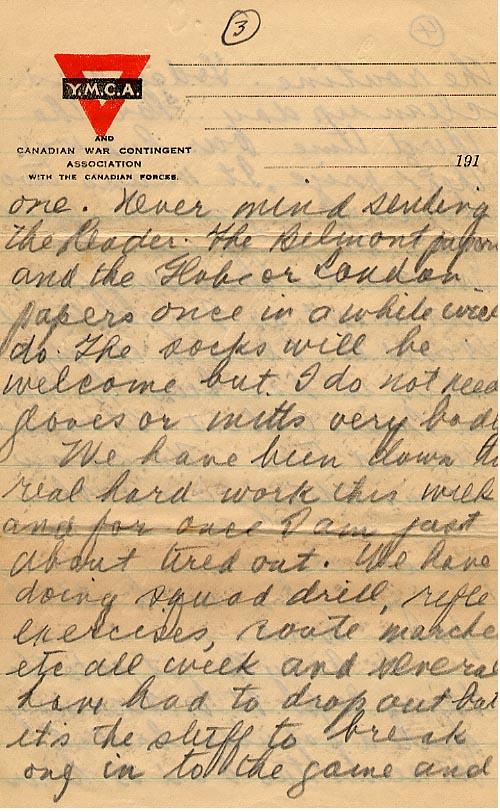 3
4
Y.M.C.A.
AND
CANADIAN WAR CONTINGENT
ASSOCIATION
WITH THE CANADIAN FORCES.
191
one. Never mind sending
the Reader. The Belmont papers
and the Globe or London
papers once in a while will
do. The socks will be
welcome but I do not need
gloves or mitts very badly
We have been down to
real hard work this week
and for once I am just
about tired out. We have
doing squad drill, rifle
exercises, route marche
etc all week and several
have had to drop out but
it's the stuff to break
one in to the game and